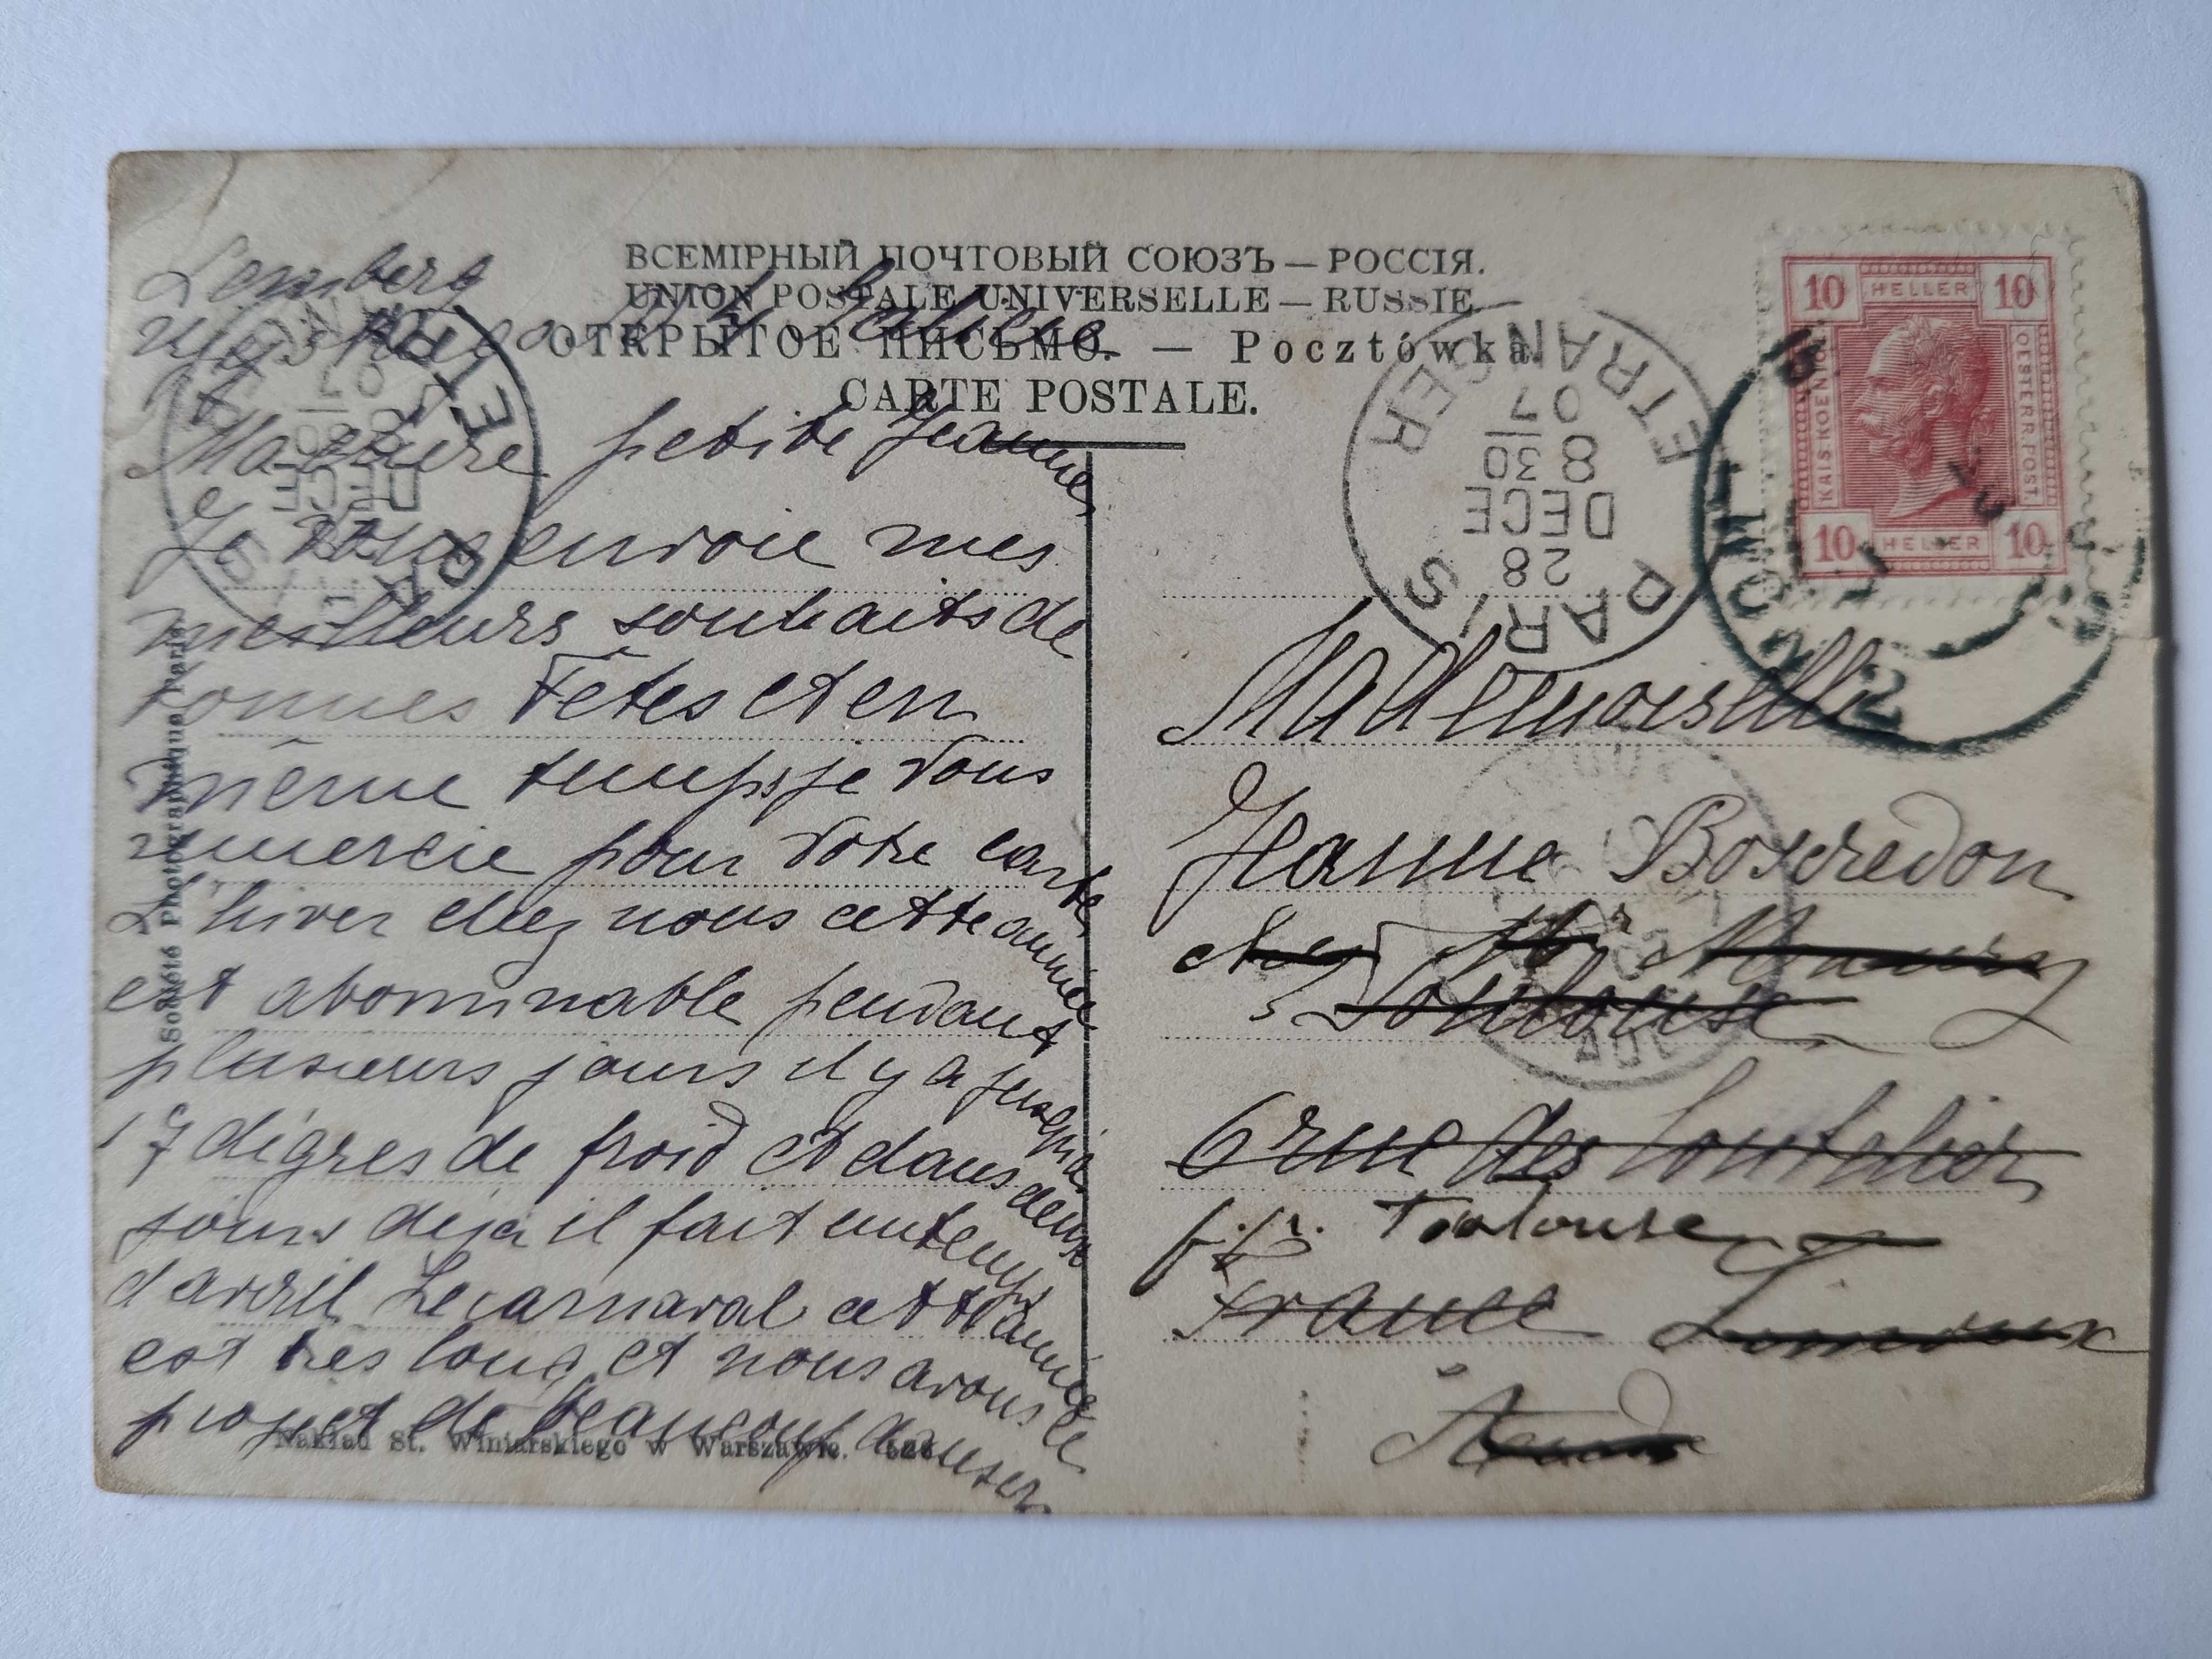 ВСЕМІРНЫЙ ПОЧТОВЫЙ СОЮЗЪ — РОССІЯ.
UNION POSTALE UNIVERSELLE — RUSSIE.
ОТКРЫТОЕ ПИСЬМО. — Pocztówka.
CARTE POSTALE.
Lemberg
Ma chère petite Jeanne
Je vous envoie mes
meilleurs souhaits de
bonnes Fêtes et en
même temps je vous
remercie pour votre carte
L'hiver chez nous cette année
est abominable pendant
plusieurs jours il y a jusqu'à
17 dégres de froid et dans deux
jours déjà il fait un temps
d'avril Le carnaval cette année
est très long et nous avons le
projet de beaucoup danser
Société Photographique Paris
Nakład St. Winiarskiego w Warszawie.
PARIS ETRANGER
28
DECE
8 30
07
PARIS ETRANGER
DECE
8 30
07
10 HELLER 10
KAIS. KOENIGL.
OESTERR. POST.
10 HELLER 10
Mademoiselle
Jeanne Boscredon
chez Mr
à Toulouse
6 rue des
Toulouse
France Limoux
Aude